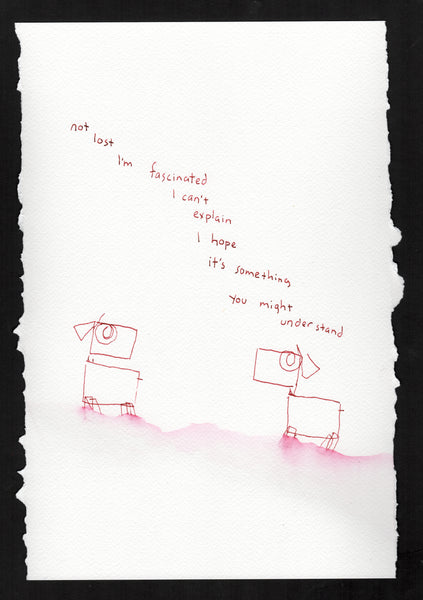 not
lost
I'm fascinated
I can't
explain
I hope
it's something
you might
understand